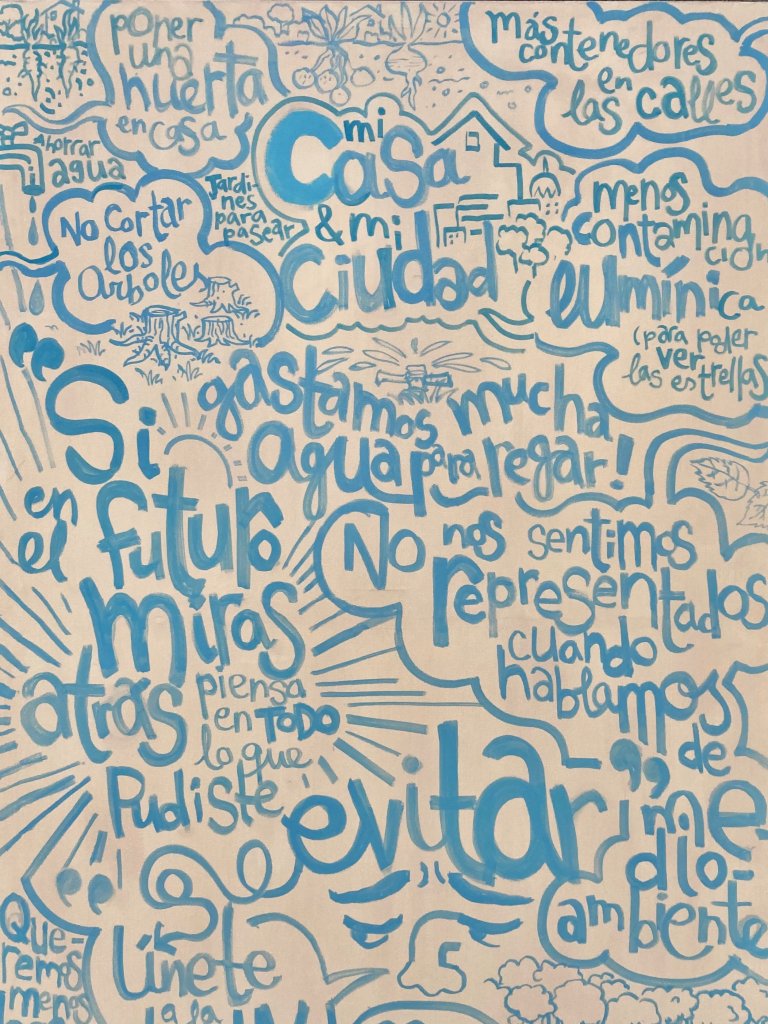 poner
una
huerta
en casa
más
contenedores
en
las calles
Ahorrar
agua
mi
Casa
& mi
Ciudad
Jardi-
nes
para
pasear
No Cortar
los
arboles
menos
contamina
ción
lumínica
(para poder
ver
las estrellas
gastamos mucha
agua para regar!
“Si
en
el futuro
miras
atras piensa
en TODO
lo que
Pudiste
evitar”
No nos sentimos
representados
cuando
hablamos
de
me-
dio-
ambiente
Que-
remos
menos
Únete
a la